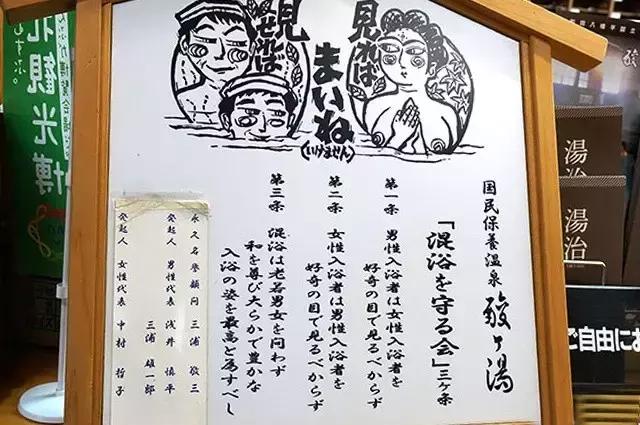 見れば
まいね
(いけません)
見せれば
国民保養温泉
酸ヶ湯
「混浴を守る会」三ヶ条
第一条 男性入浴者は女性入浴者を
好奇の目で見るべからず
第二条 女性入浴者は男性入浴者を
好奇の目で見るべからず
第三条 混浴は老若男女を問わず
和を尊び大らかで豊かな
入浴の姿を最高と為すべし
永久名誉顧問 三浦敬三
三浦雄一郎
発起人 男性代表 浅井慎平
発起人 女性代表 中村哲子
北観光博
湯治
湯治
ご自由にお